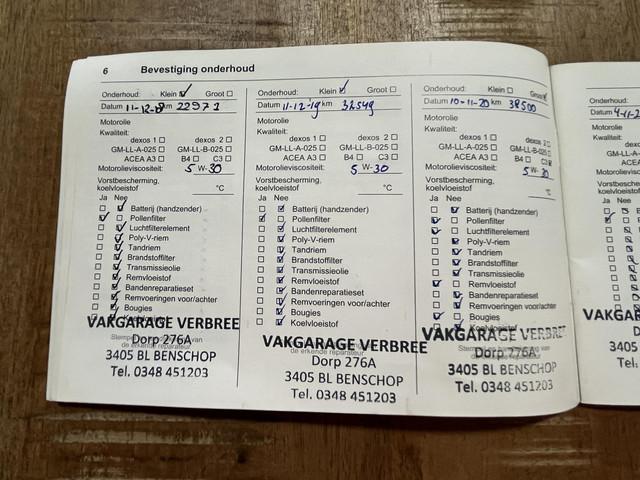 6 Bevestiging onderhoud
Onderhoud: Klein Groot
Datum 11-12-18 km 22971
Motorolie
Kwaliteit:
dexos 1 dexos 2
GM-LL-A-025 GM-LL-B-025
ACEA A3 B4 C3
Motorolieviscositeit: 5 W-30
Vorstbescherming,
koelvloeistof °C
Ja Nee
Batterij (handzender)
Pollenfilter
Luchtfilterelement
Poly-V-riem
Tandriem
Brandstoffilter
Transmissieolie
Remvloeistof
Bandenreparatieset
Remvoeringen voor/achter
Bougies
VAKGARAGE VERBREE
Dorp 276A
3405 BL BENSCHOP
Tel. 0348 451203
Onderhoud: Klein Groot
Datum 11-12-19 km 32549
Motorolie
Kwaliteit:
dexos 1 dexos 2
GM-LL-A-025 GM-LL-B-025
ACEA A3 B4 C3
Motorolieviscositeit: 5 W-30
Vorstbescherming,
koelvloeistof °C
Ja Nee
Batterij (handzender)
Pollenfilter
Luchtfilterelement
Poly-V-riem
Tandriem
Brandstoffilter
Transmissieolie
Remvloeistof
Bandenreparatieset
Remvoeringen voor/achter
Bougies
Koelvloeistof
VAKGARAGE VERBREE
Dorp 276A
3405 BL BENSCHOP
Tel. 0348 451203
Onderhoud: Klein Groot
Datum 10-11-20 km 38500
Motorolie
Kwaliteit:
dexos 1 dexos 2
GM-LL-A-025 GM-LL-B-025
ACEA A3 B4 C3
Motorolieviscositeit: 5 W-30
Vorstbescherming,
koelvloeistof °C
Ja Nee
Batterij (handzender)
Pollenfilter
Luchtfilterelement
Poly-V-riem
Tandriem
Brandstoffilter
Transmissieolie
Remvloeistof
Bandenreparatieset
Remvoeringen voor/achter
Bougies
Koelvloeistof
VAKGARAGE VERBREE
Dorp 276A
3405 BL BENSCHOP
Tel. 0348 451203
Onderhoud:
Datum
Motorolie
Kwaliteit:
Motorolieviscosi
Vorstbescherm
koelvloeistof
Ja Nee
VAKGAR
3405
Tel.